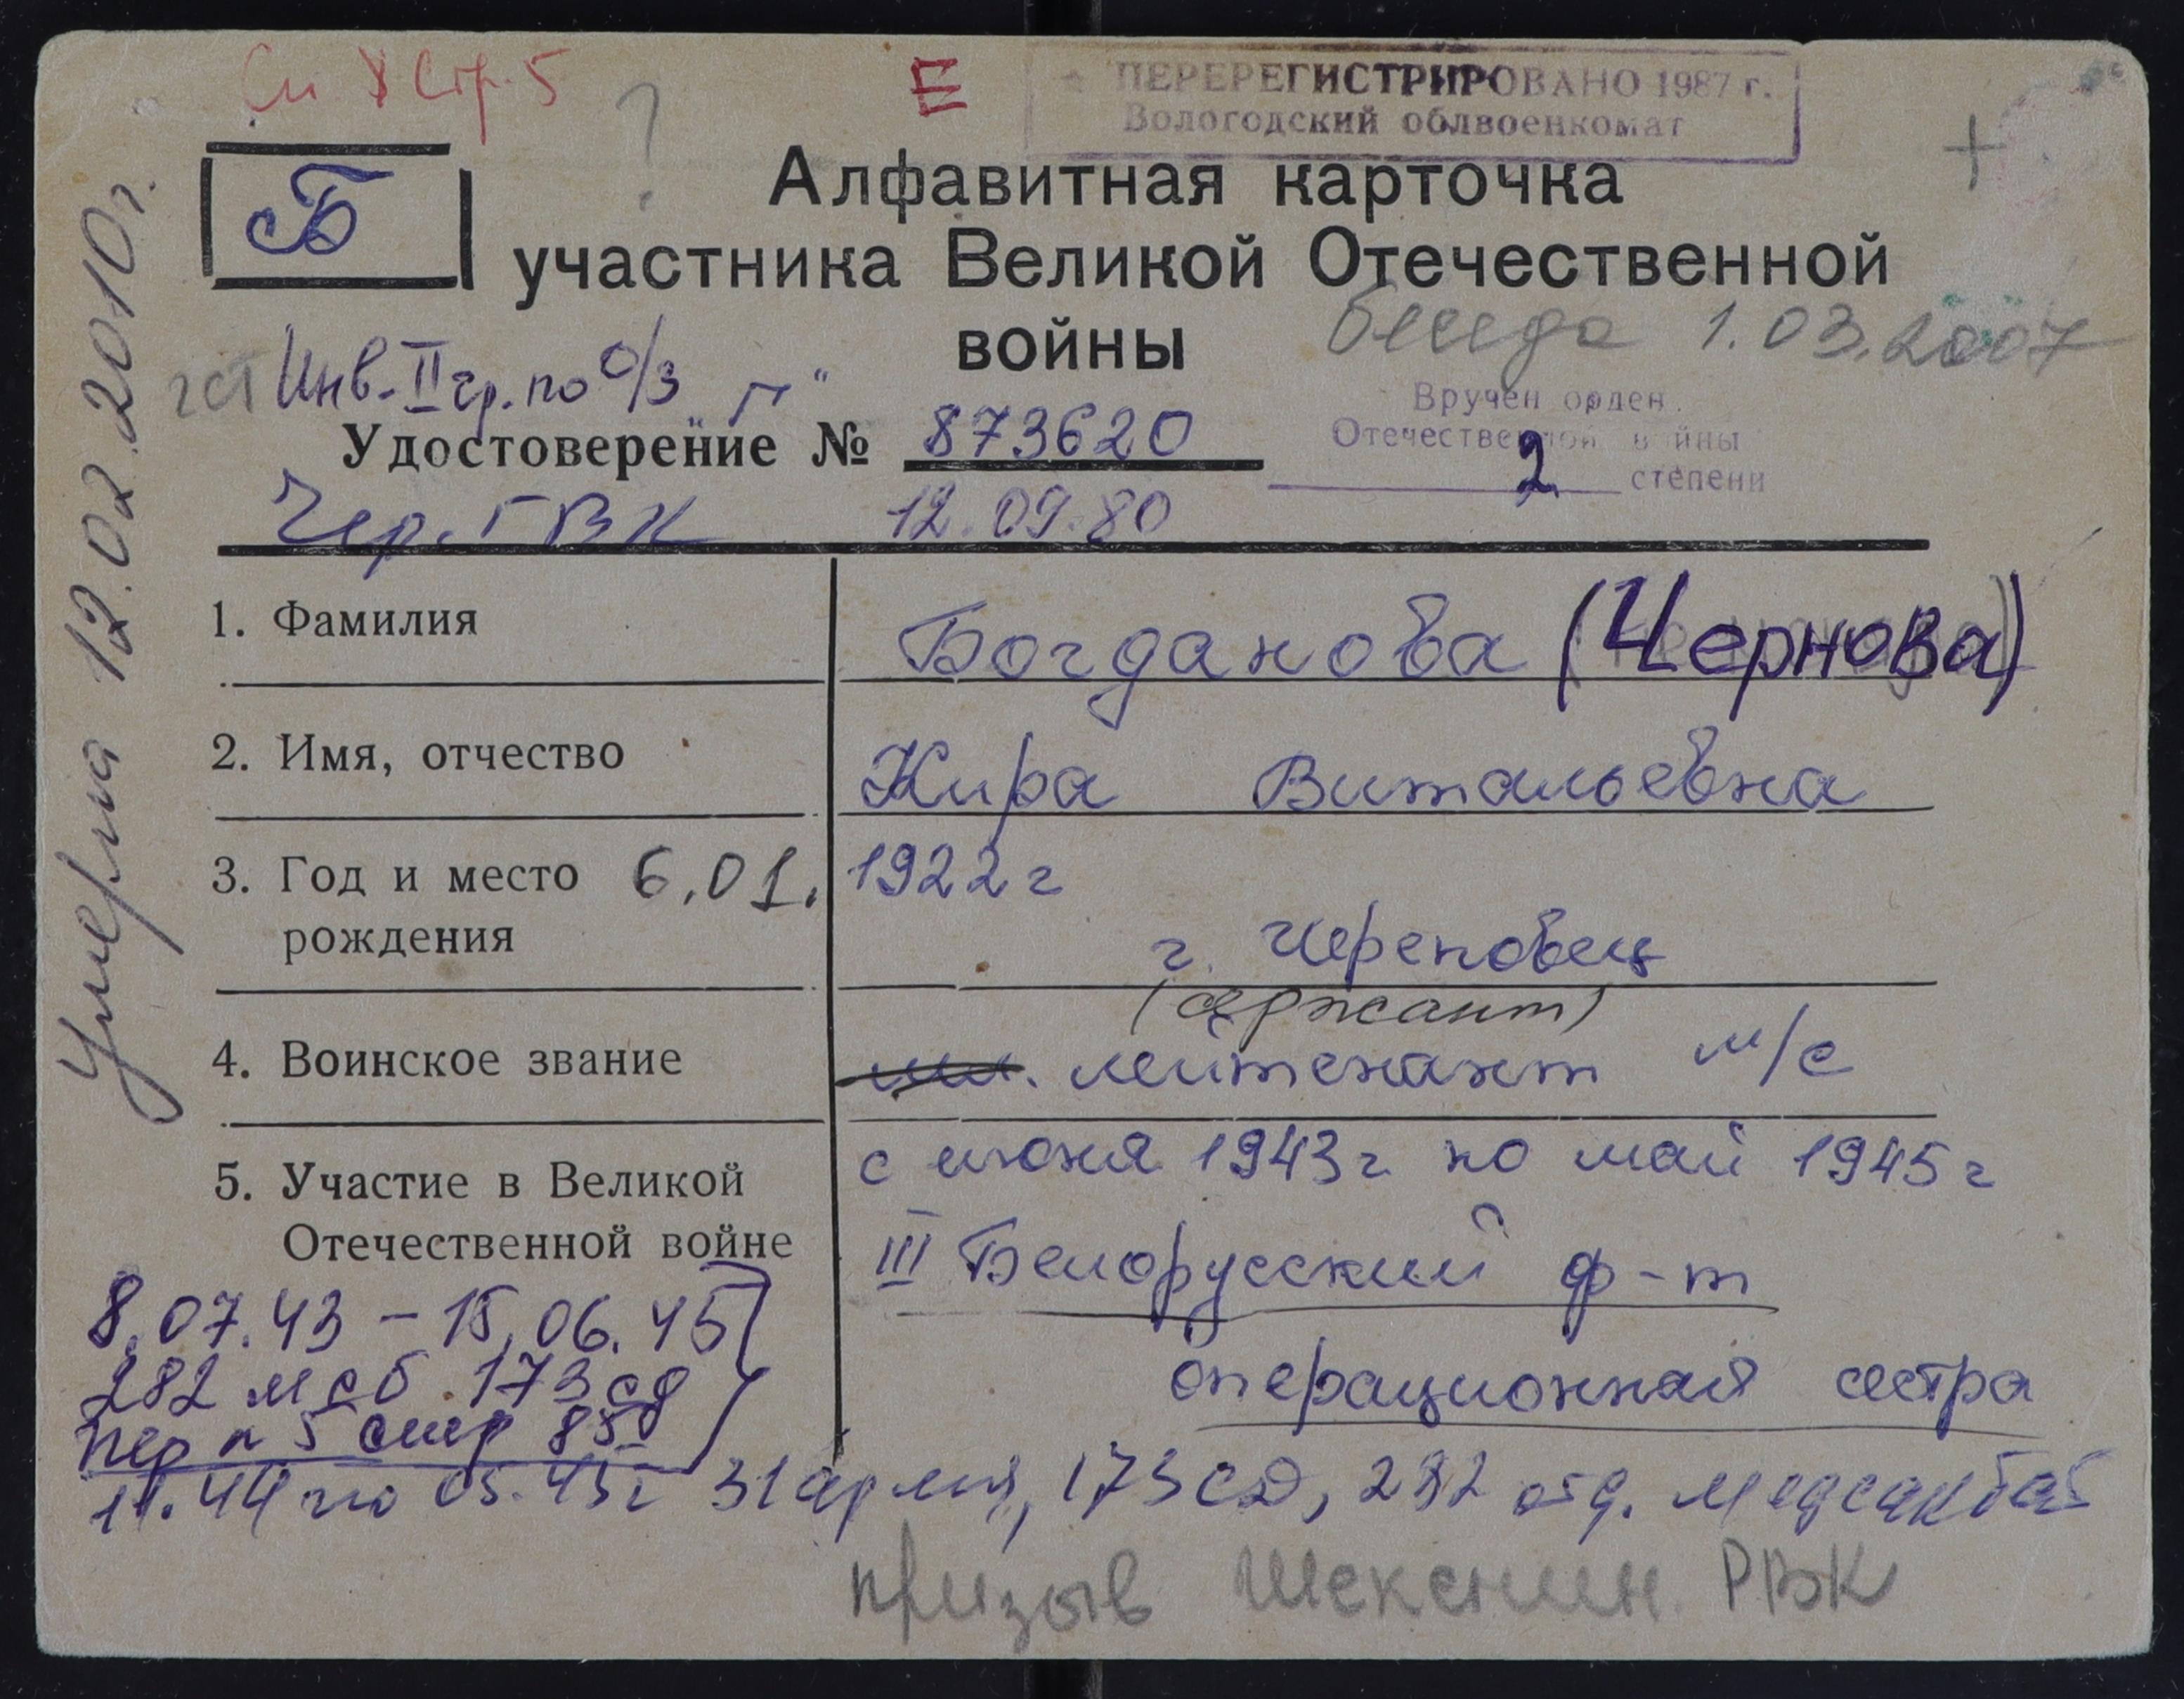 См X Стр. 5
?
Е
ПЕРЕРЕГИСТРИРОВАНО 1987 г.
Вологодский облвоенкомат
+
Б
Алфавитная карточка
участника Великой Отечественной
войны
беседа 1.03.2007
Инв. II гр. по о/з „Г"
Удостоверение № 873620
Вручен орден
Отечественной войны
2 степени
Чер. ГВК 12.09.80
1. Фамилия Богданова (Чернова)
2. Имя, отчество Кира Витальевна
3. Год и место 6.01. 1922 г
рождения г. Череповец
(сержант)
4. Воинское звание лейтенант м/с
5. Участие в Великой с июня 1943 г по май 1945 г
Отечественной войне III Белорусский ф-т
операционная сестра
8.07.43 – 15.06.45
282 мсб 173 сд
пер п 5 стр 85д
11.44 по 05.45 г 31 армия, 173 СД, 282 отд. медсанбат
призыв Шекснин. РВК
Умерла 12.02.2010 г.